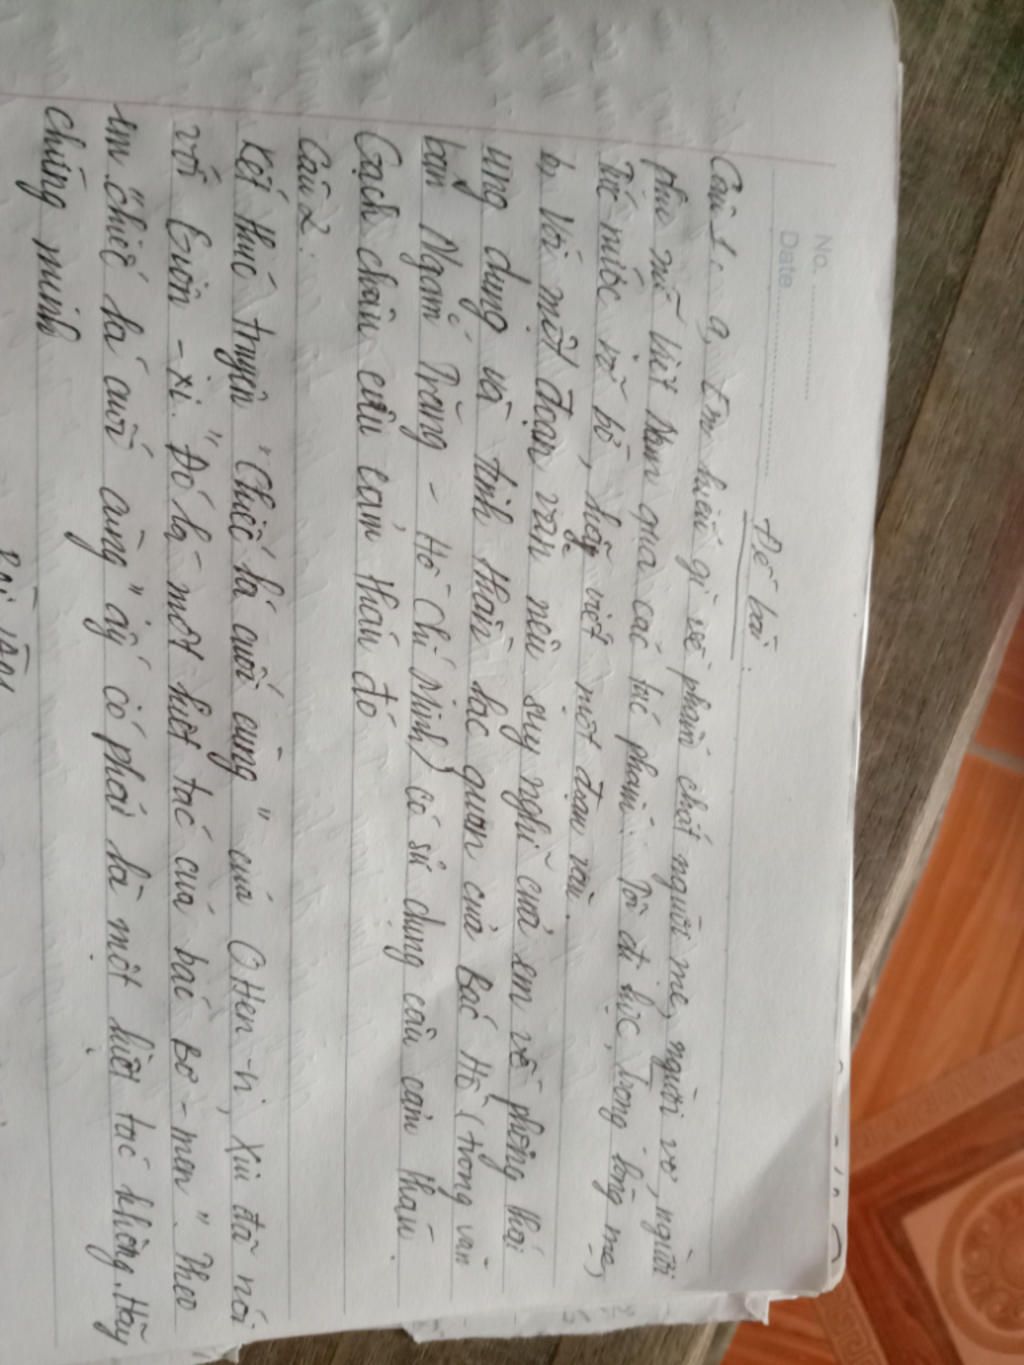 No. ............
Date ..................
Đề bài :
Câu 1. a, Em hiểu gì về phẩm chất người mẹ, người vợ, người
phụ nữ Việt Nam qua các tác phẩm: Tôi đi học, trong lòng mẹ,
Tức nước vỡ bờ, hãy viết một đoạn văn.
b, Với một đoạn văn nêu suy nghĩ của em về phong thái
ung dung và tinh thần lạc quan của Bác Hồ (trong văn
bản Ngắm Trăng - Hồ Chí Minh) có sử dụng câu cảm thán.
Gạch chân câu cảm thán đó
Câu 2.
Kết thúc truyện "Chiếc lá cuối cùng" của OHen-ri, Xiu đã nói
với Giôn-xi. "Đó là một kiệt tác của bác Bơ-men". Theo
em "chiếc lá cuối cùng" ấy có phải là một kiệt tác không. Hãy
chứng minh
Bài làm